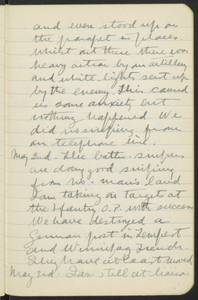 and even stood up on
the parapet in places
whilst out there there was
heavy action by our artillery
and white lights sent up
by the enemy. This caused
us some anxiety but
nothing happened. We
did no sniping from
our telephone line.
May 2nd. The battn snipers
are doing good sniping
from No-mans land
I am taking on targets at
the Infantry O.P. with success
We have destroyed a
German post in Tempest
and Winnipeg Trench.
They have at least
May 3rd. I am still at